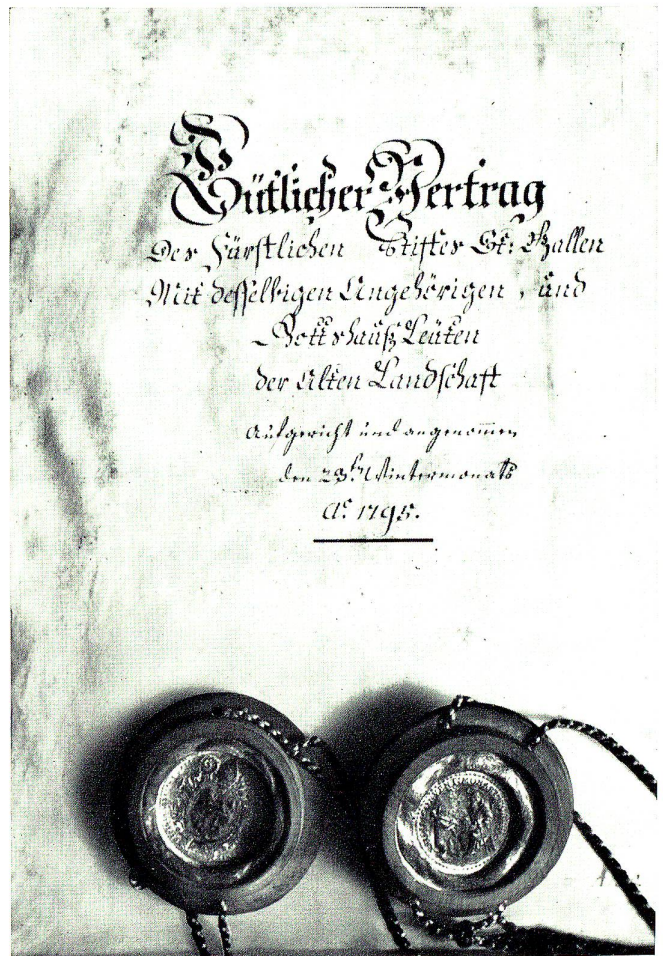 Gütlicher Vertrag
Des Fürstlichen Stiftes St: Gallen
Mit desselbigen Angehörigen, und
Gottshauß Leüten
der Alten Landschaft
Aufgericht und angenom̅en
den 23t. Wintermonats
Aº. 1795.